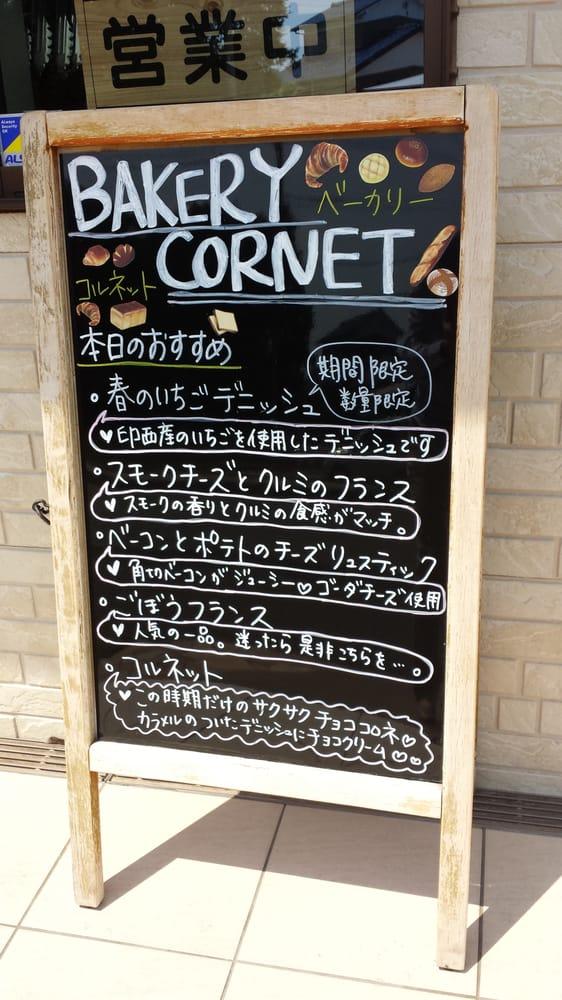 営業中
Always
Security
OK
ALS
BAKERY
ベーカリー
CORNET
コルネット
本日のおすすめ
期間限定
数量限定
・春のいちごデニッシュ
♥印西産のいちごを使用したデニッシュです
・スモークチーズとクルミのフランス
♥スモークの香りとクルミの食感がマッチ。
・ベーコンとポテトのチーズリュスティック
♥角切ベーコンがジューシー♡ゴーダチーズ使用
・ごぼうフランス
♥人気の一品。迷ったら是非こちらを…。
・コルネット
♡この時期だけのサクサクチョココロネ♡
カラメルのついたデニッシュにチョコクリーム♡♡